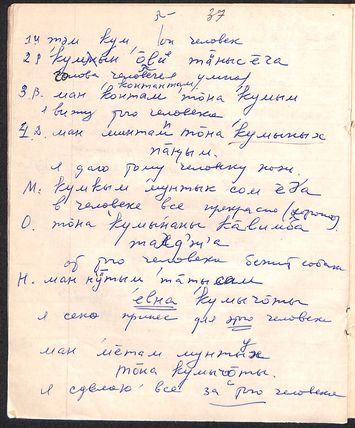 37
1 И тэм кум / он человек
2 Р кумын о̄вы̄ та̄ныс е̄га
голова человечья умная
контантам
3 В. ман контам то̄на кумым
я вижу этого человека
4 Д. ман минтам то̄на кумыных
па̄ңым.
я даю этому человеку нож
М: кумкым мунтык сом е̄га
в человеке все прекрасно (хорошо).
О. то̄на кумынаны кавимба
от этого человека бежит собака
Н. ман нӯтым та̄тысам
е̄вна кумычо̄ты
я сено принес для этого человека
ман ме̄там мунтых
то̄на кумычо̄ты.
я сделаю все за этого человека